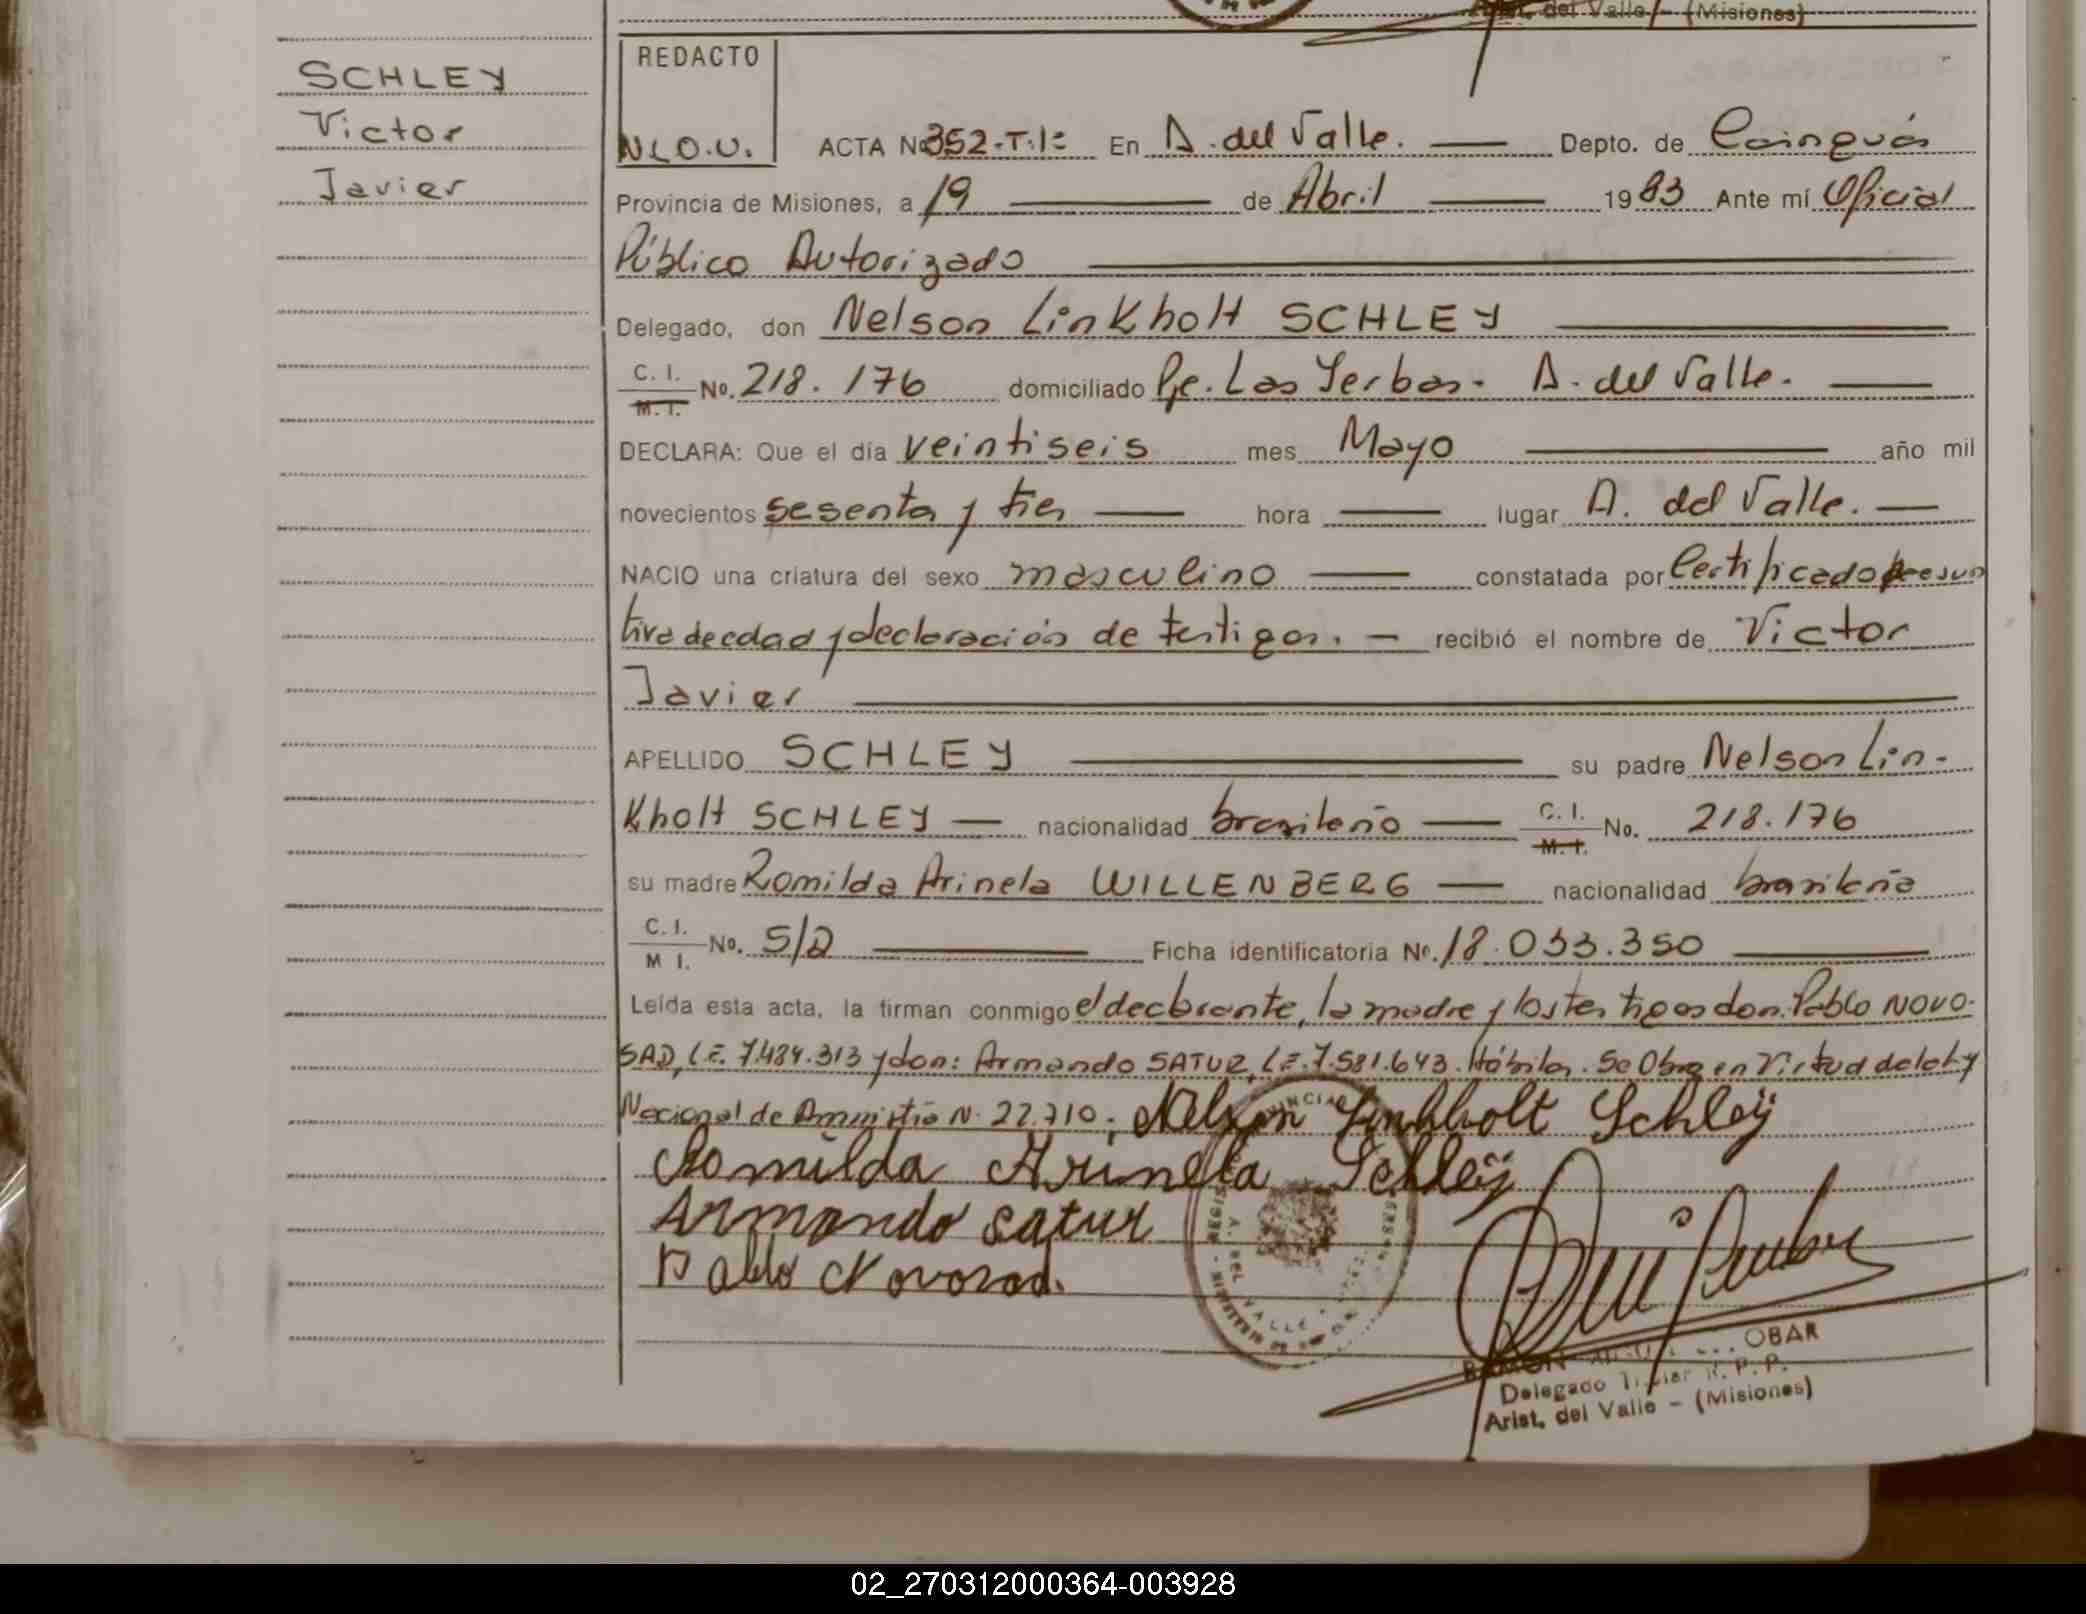 Arist. del Valle - (Misiones)
SCHLEY
Victor
Javier
REDACTO
N.L.O.U.
ACTA Nº 352-T.1º En A. del Valle. Depto. de Cainguás
Provincia de Misiones, a 19 de Abril 1983 Ante mí Oficial
Público Autorizado
Delegado, don Nelson Linkholt SCHLEY
C. I. M. I. No. 218.176 domiciliado Pje. Las Yerbas. A. del Valle.
DECLARA: Que el día veintiseis mes Mayo año mil
novecientos sesenta y tres hora lugar A. del Valle.
NACIO una criatura del sexo masculino constatada por Certificado presun
tiva de edad y declaración de testigos. recibió el nombre de Victor
Javier
APELLIDO SCHLEY su padre Nelson Lin-
Kholt SCHLEY nacionalidad brasileño C. I. M. I. No. 218.176
su madre Romilda Arinela WILLENBERG nacionalidad brasileña
C. I. M I. No. S/D Ficha identificatoria Nº. 18.033.350
Leída esta acta, la firman conmigo el declarante, la madre y los testigos don Pablo NOVO-
SAD, L.E. 7.484.313 y don: Armando SATUR, L.E. 7.581.643. Hábiles. Se Obra en Virtud de la Ley
Nacional de Amnistía N. 22.710.
Nelson Linkholt Schley
Romilda Arinela Schley
Armando Satur
Pablo Novosad.
A. DEL VALLE
RAMON OBAR
Delegado Titular R. P. P.
Arist. del Valle - (Misiones)
02_270312000364-003928